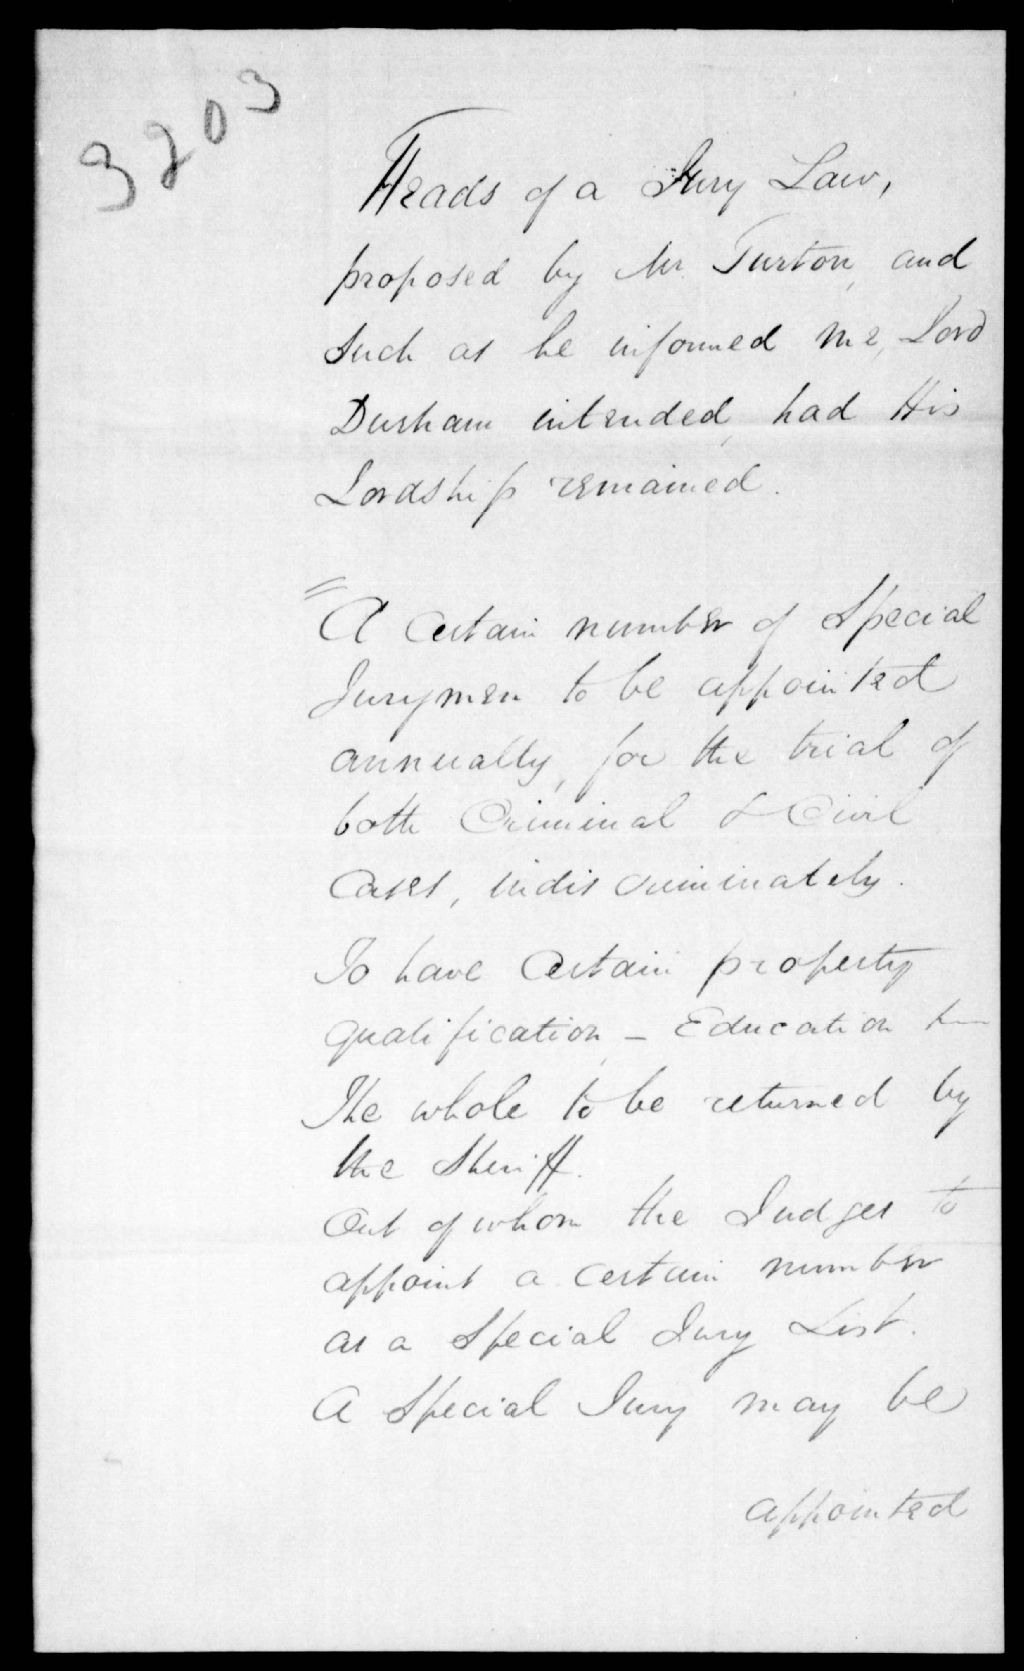 3203
Heads of a Jury Law,
proposed by Mr. Turton, and
such as he informed me, Lord
Durham intended, had His
Lordship remained.
"A certain number of Special
Jurymen to be appointed
annually, for the trial of
both Criminal & Civil
Cases, indiscriminately.
To have certain property
qualification, – Education
The whole to be returned by
the Sheriff.
Out of whom the Judges to
appoint a certain number
as a Special Jury List.
A Special Jury may be
appointed